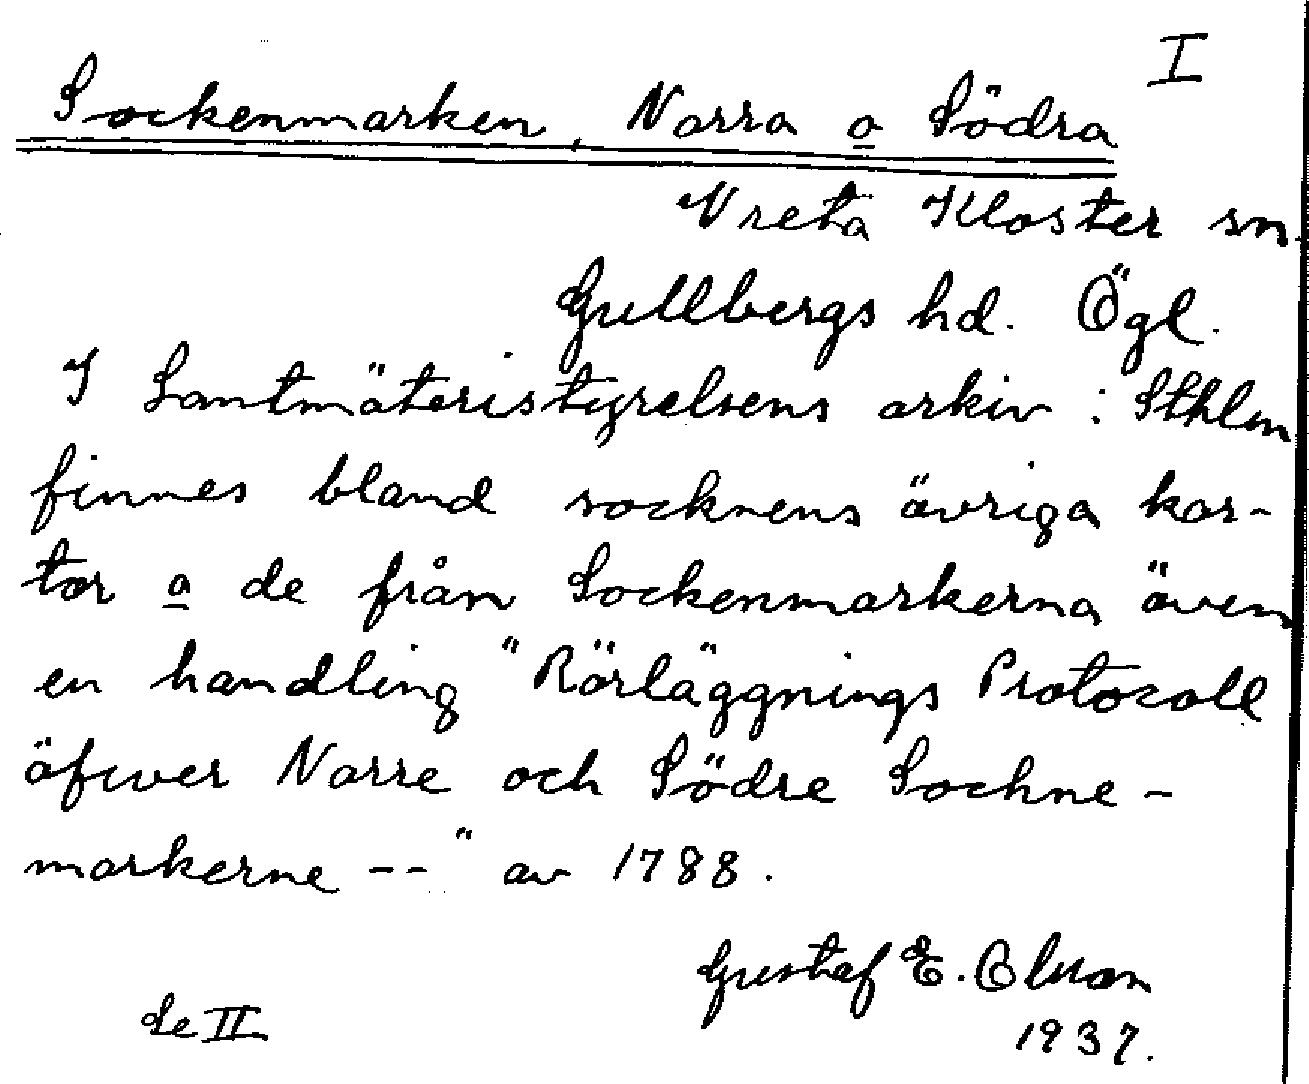 I
Sockenmarken, Norra o Södra
Vreta Kloster sn.
Gullbergs hd. Ögl.
I Lantmäteristyrelsens arkiv i Sthlm
finnes bland socknens övriga kar-
tor o de från Sockenmarkerna även
en handling "Rörläggnings Protocoll
öfwer Norre och Södre Sochne-
markerne --" av 1788.
Gustaf E. Olsson
1937.
Se II